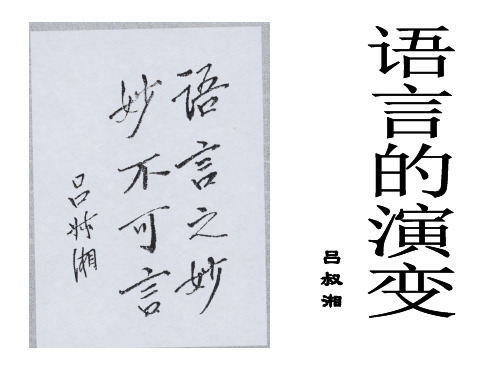 语言之妙
妙不可言
吕叔湘
语言的演变
吕叔湘